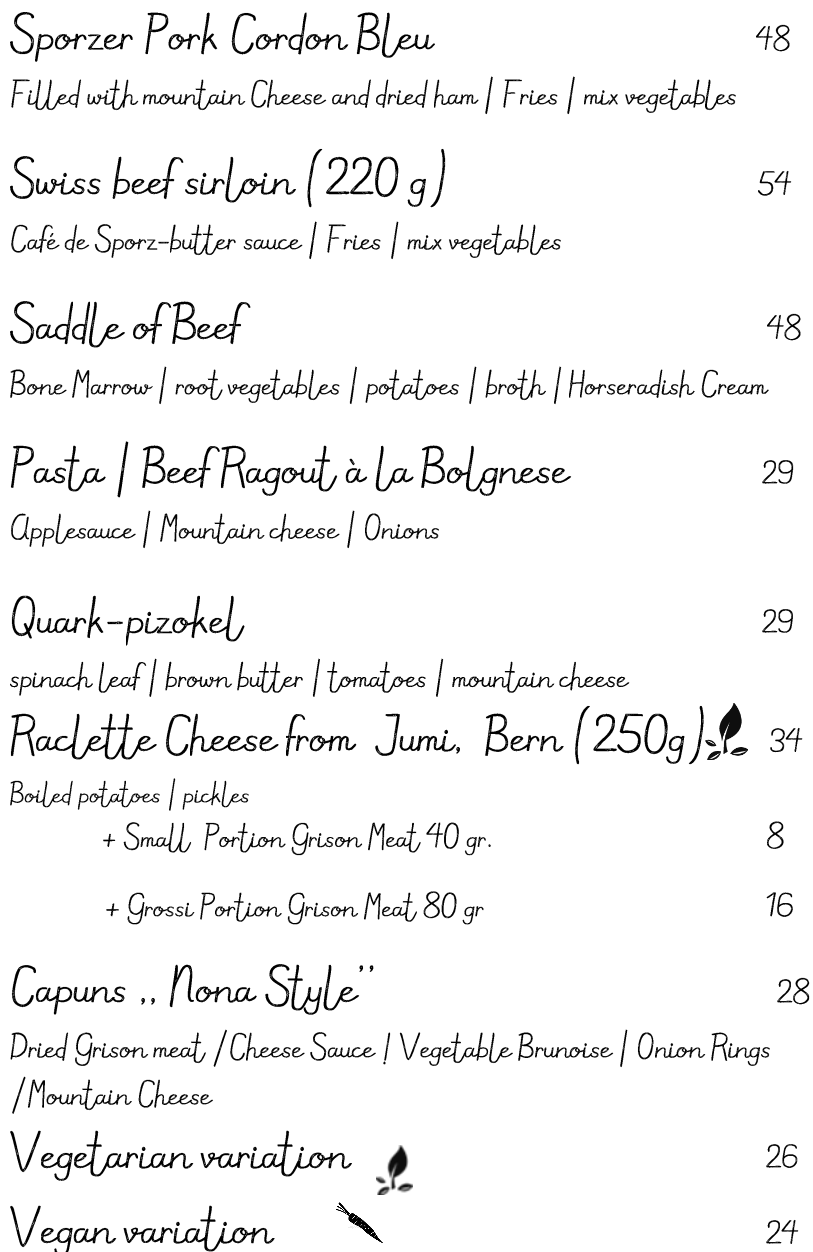 Sporzer Pork Cordon Bleu 48
Filled with mountain Cheese and dried ham | Fries | mix vegetables
Swiss beef sirloin (220 g) 54
Café de Sporz-butter sauce | Fries | mix vegetables
Saddle of Beef 48
Bone Marrow | root vegetables | potatoes | broth | Horseradish Cream
Pasta | Beef Ragout à la Bolgnese 29
Applesauce | Mountain cheese | Onions
Quark-pizokel 29
spinach leaf | brown butter | tomatoes | mountain cheese
Raclette Cheese from Jumi, Bern (250g) 34
Boiled potatoes | pickles
+ Small Portion Grison Meat 40 gr. 8
+ Grossi Portion Grison Meat 80 gr 16
Capuns ,, Nona Style’’ 28
Dried Grison meat / Cheese Sauce ! Vegetable Brunoise | Onion Rings
/Mountain Cheese
Vegetarian variation 26
Vegan variation 24